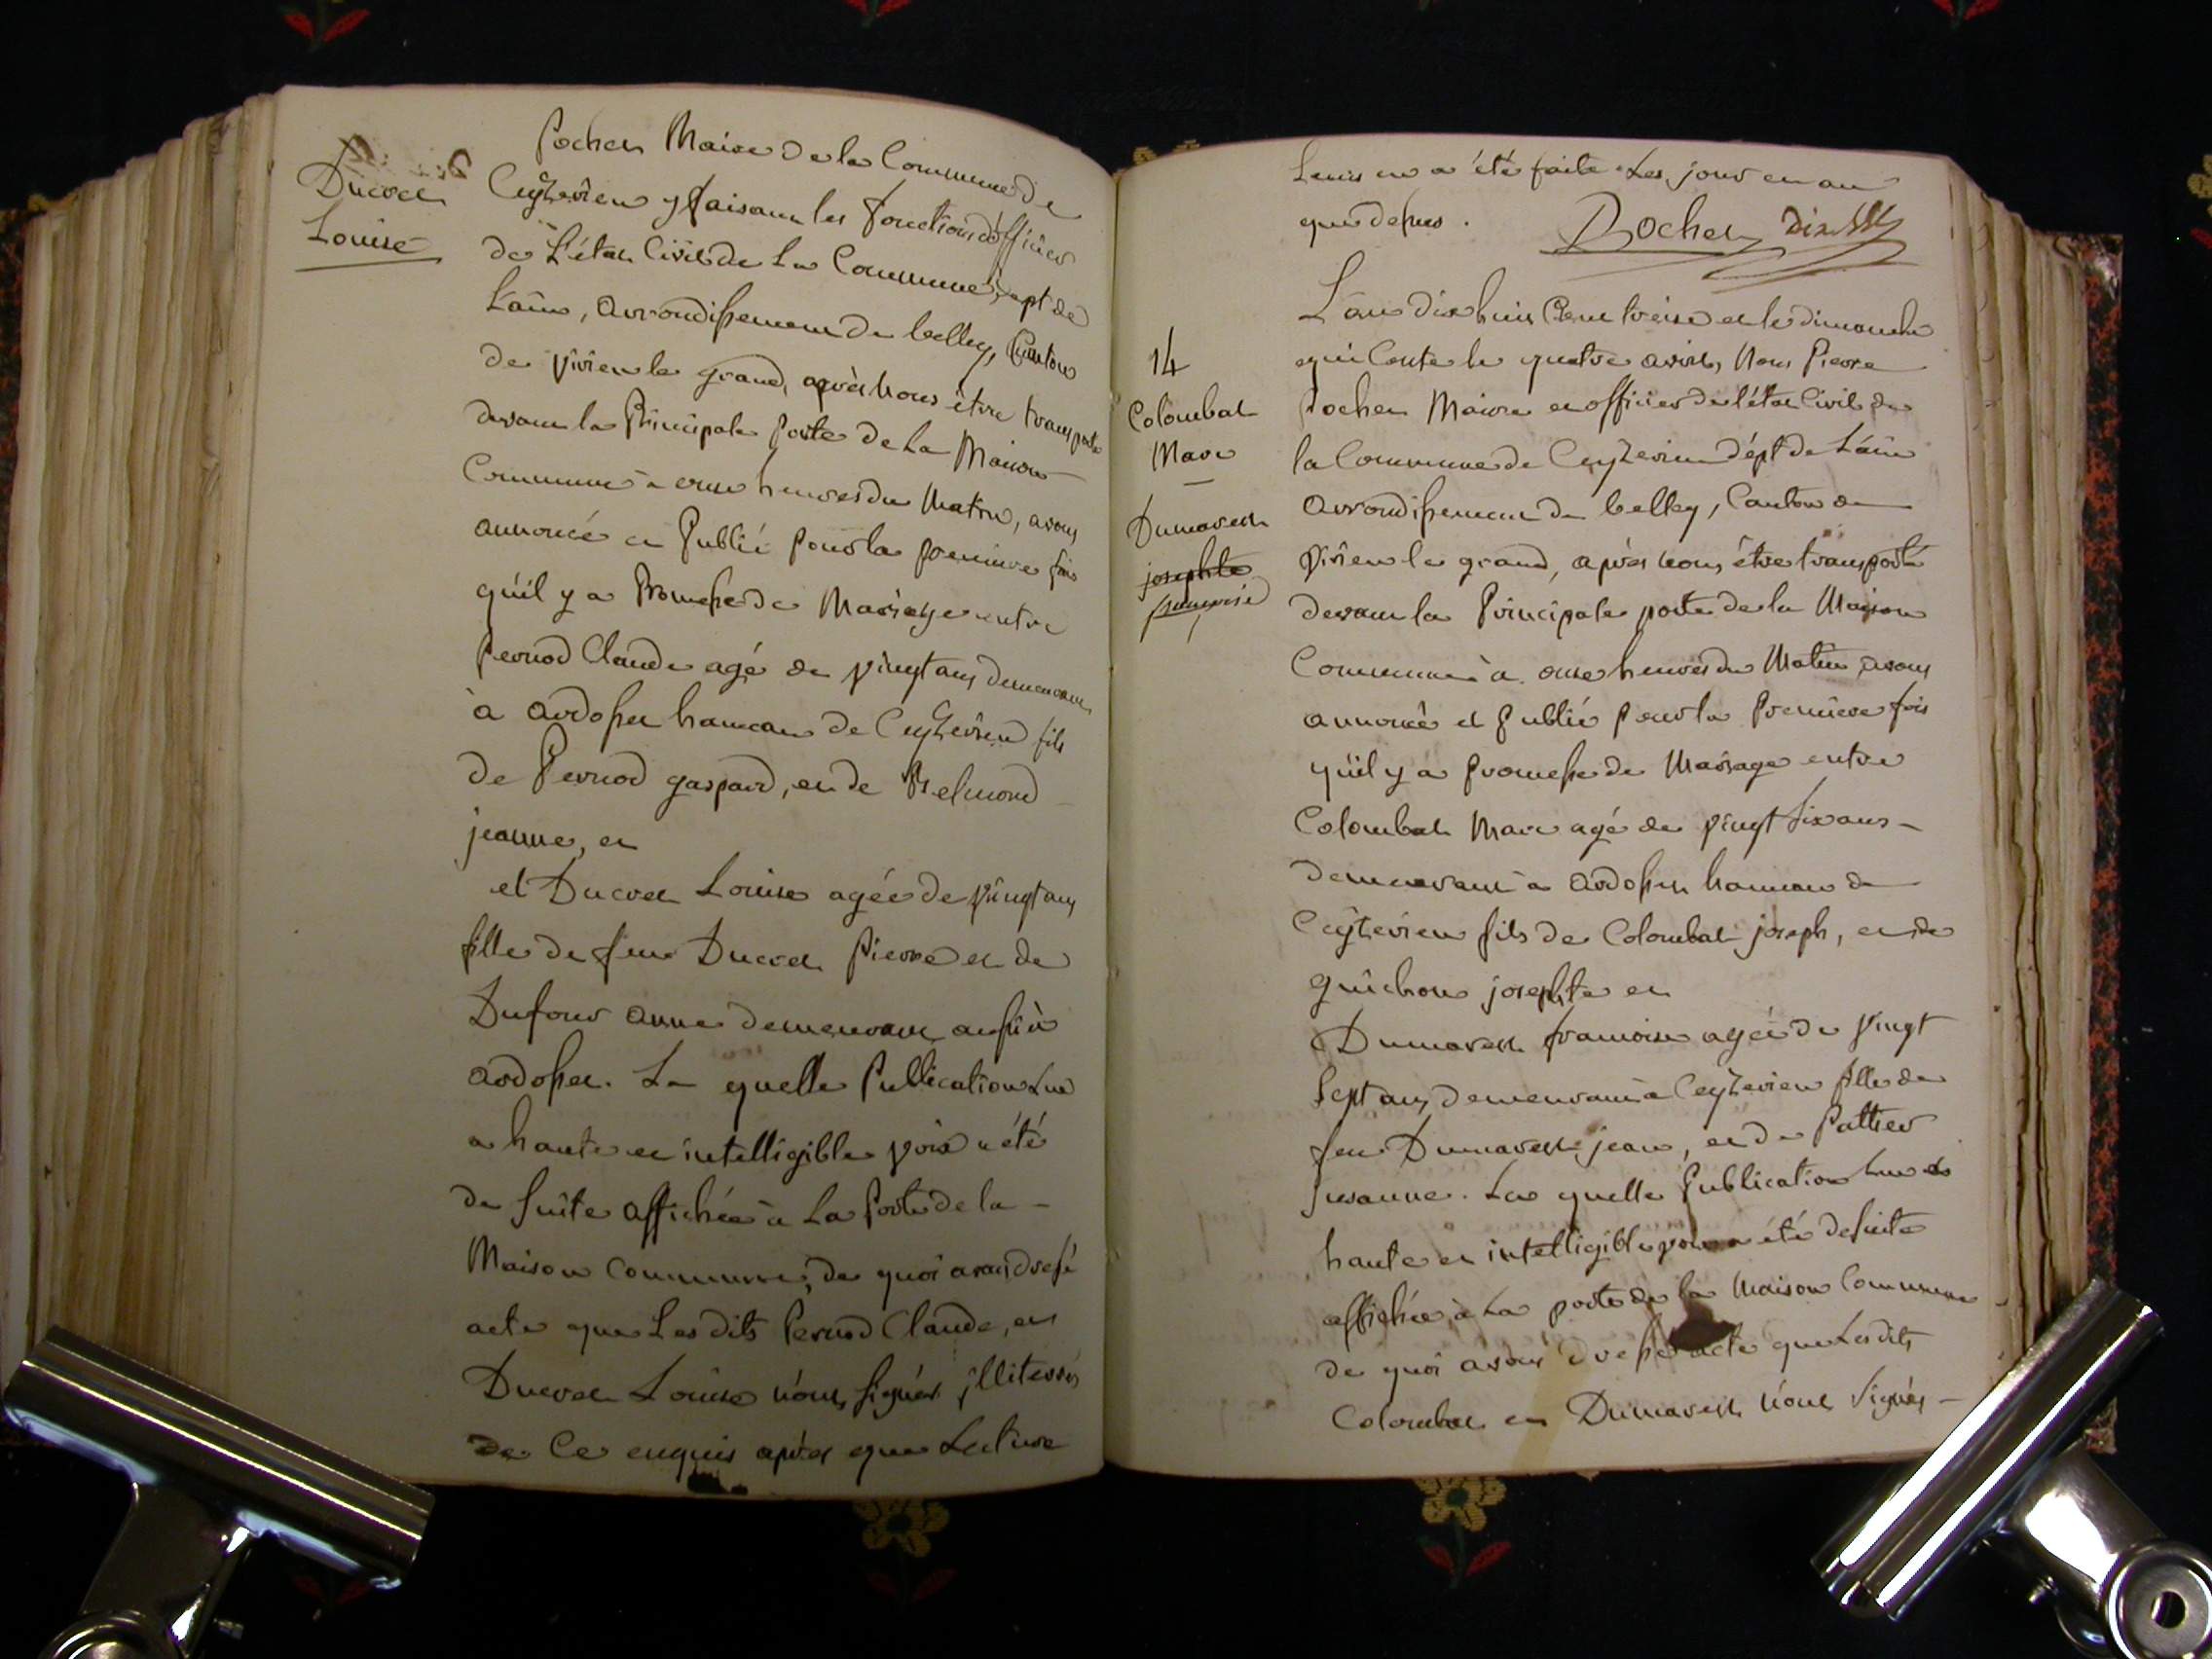 Ducret
Louise
Pochet Maire de la Commune de
Ceyzérieu y faisant les fonctions d'officier
de L'état Civil de La Commune, dept de
L'ain, arrondissement de belley, Canton
de virieu le grand, après nous être transporté
devant la Principale Porte de La Maison
Commune à onze heures du Matin, avons
annoncé et Publié pour la première fois
qu'il y a Promesse de Mariage entre
Pernod Claude agé de vingt ans demeurant
à ardosset hameau de Ceyzérieu fils
de Pernod gaspard, et de Belmond
jeanne, et
et Ducret Louise agée de vingt ans
fille de feu Ducret Pierre et de
Dufour anne demeurant aussi à
ardosset. La quelle Publication Lue
a haute et intelligible voix a été
de suite affichée à La Porte de la
Maison commune, de quoi avons dressé
acte que Les dits Pernod Claude, et
Ducret Louise n'ont signés jlliterés
de Ce enquis après que Lecture
Leurs en a été faite Les jour et an
que dessus. Pochet
14
Colombat
Marc
Dumarest
josephte
françoise
L'an dix huit Cent treize et le dimanche
qui Conte le quatre avril, Nous Pierre
Pochet Maire et officier de l'état Civil de
la Commune de Ceyzerieu dépt de L'ain
arrondissement de belley, Canton de
virieu le grand, après nous être transporté
devant la Principale porte de la Maison
Commune à onze heures du Matin avons
annoncé et Publié pour la Première fois
qu'il y a promesse de Mariage entre
Colombat Marc agé de vingt six ans
demeurant à ardosset hameau de
Ceyzerieu fils de Colombat joseph, et de
guichon josephte et
Dumarest francoise agée de vingt
sept ans demeurant à Ceyzerieu fille de
feu Dumarest jean, et de Pattier
susanne. La quelle Publication Lue à
haute et intelligible voix a été de suite
affichée à La porte de la Maison Commune
de quoi avons dressé acte que Les dits
Colombat et Dumarest n'ont signés